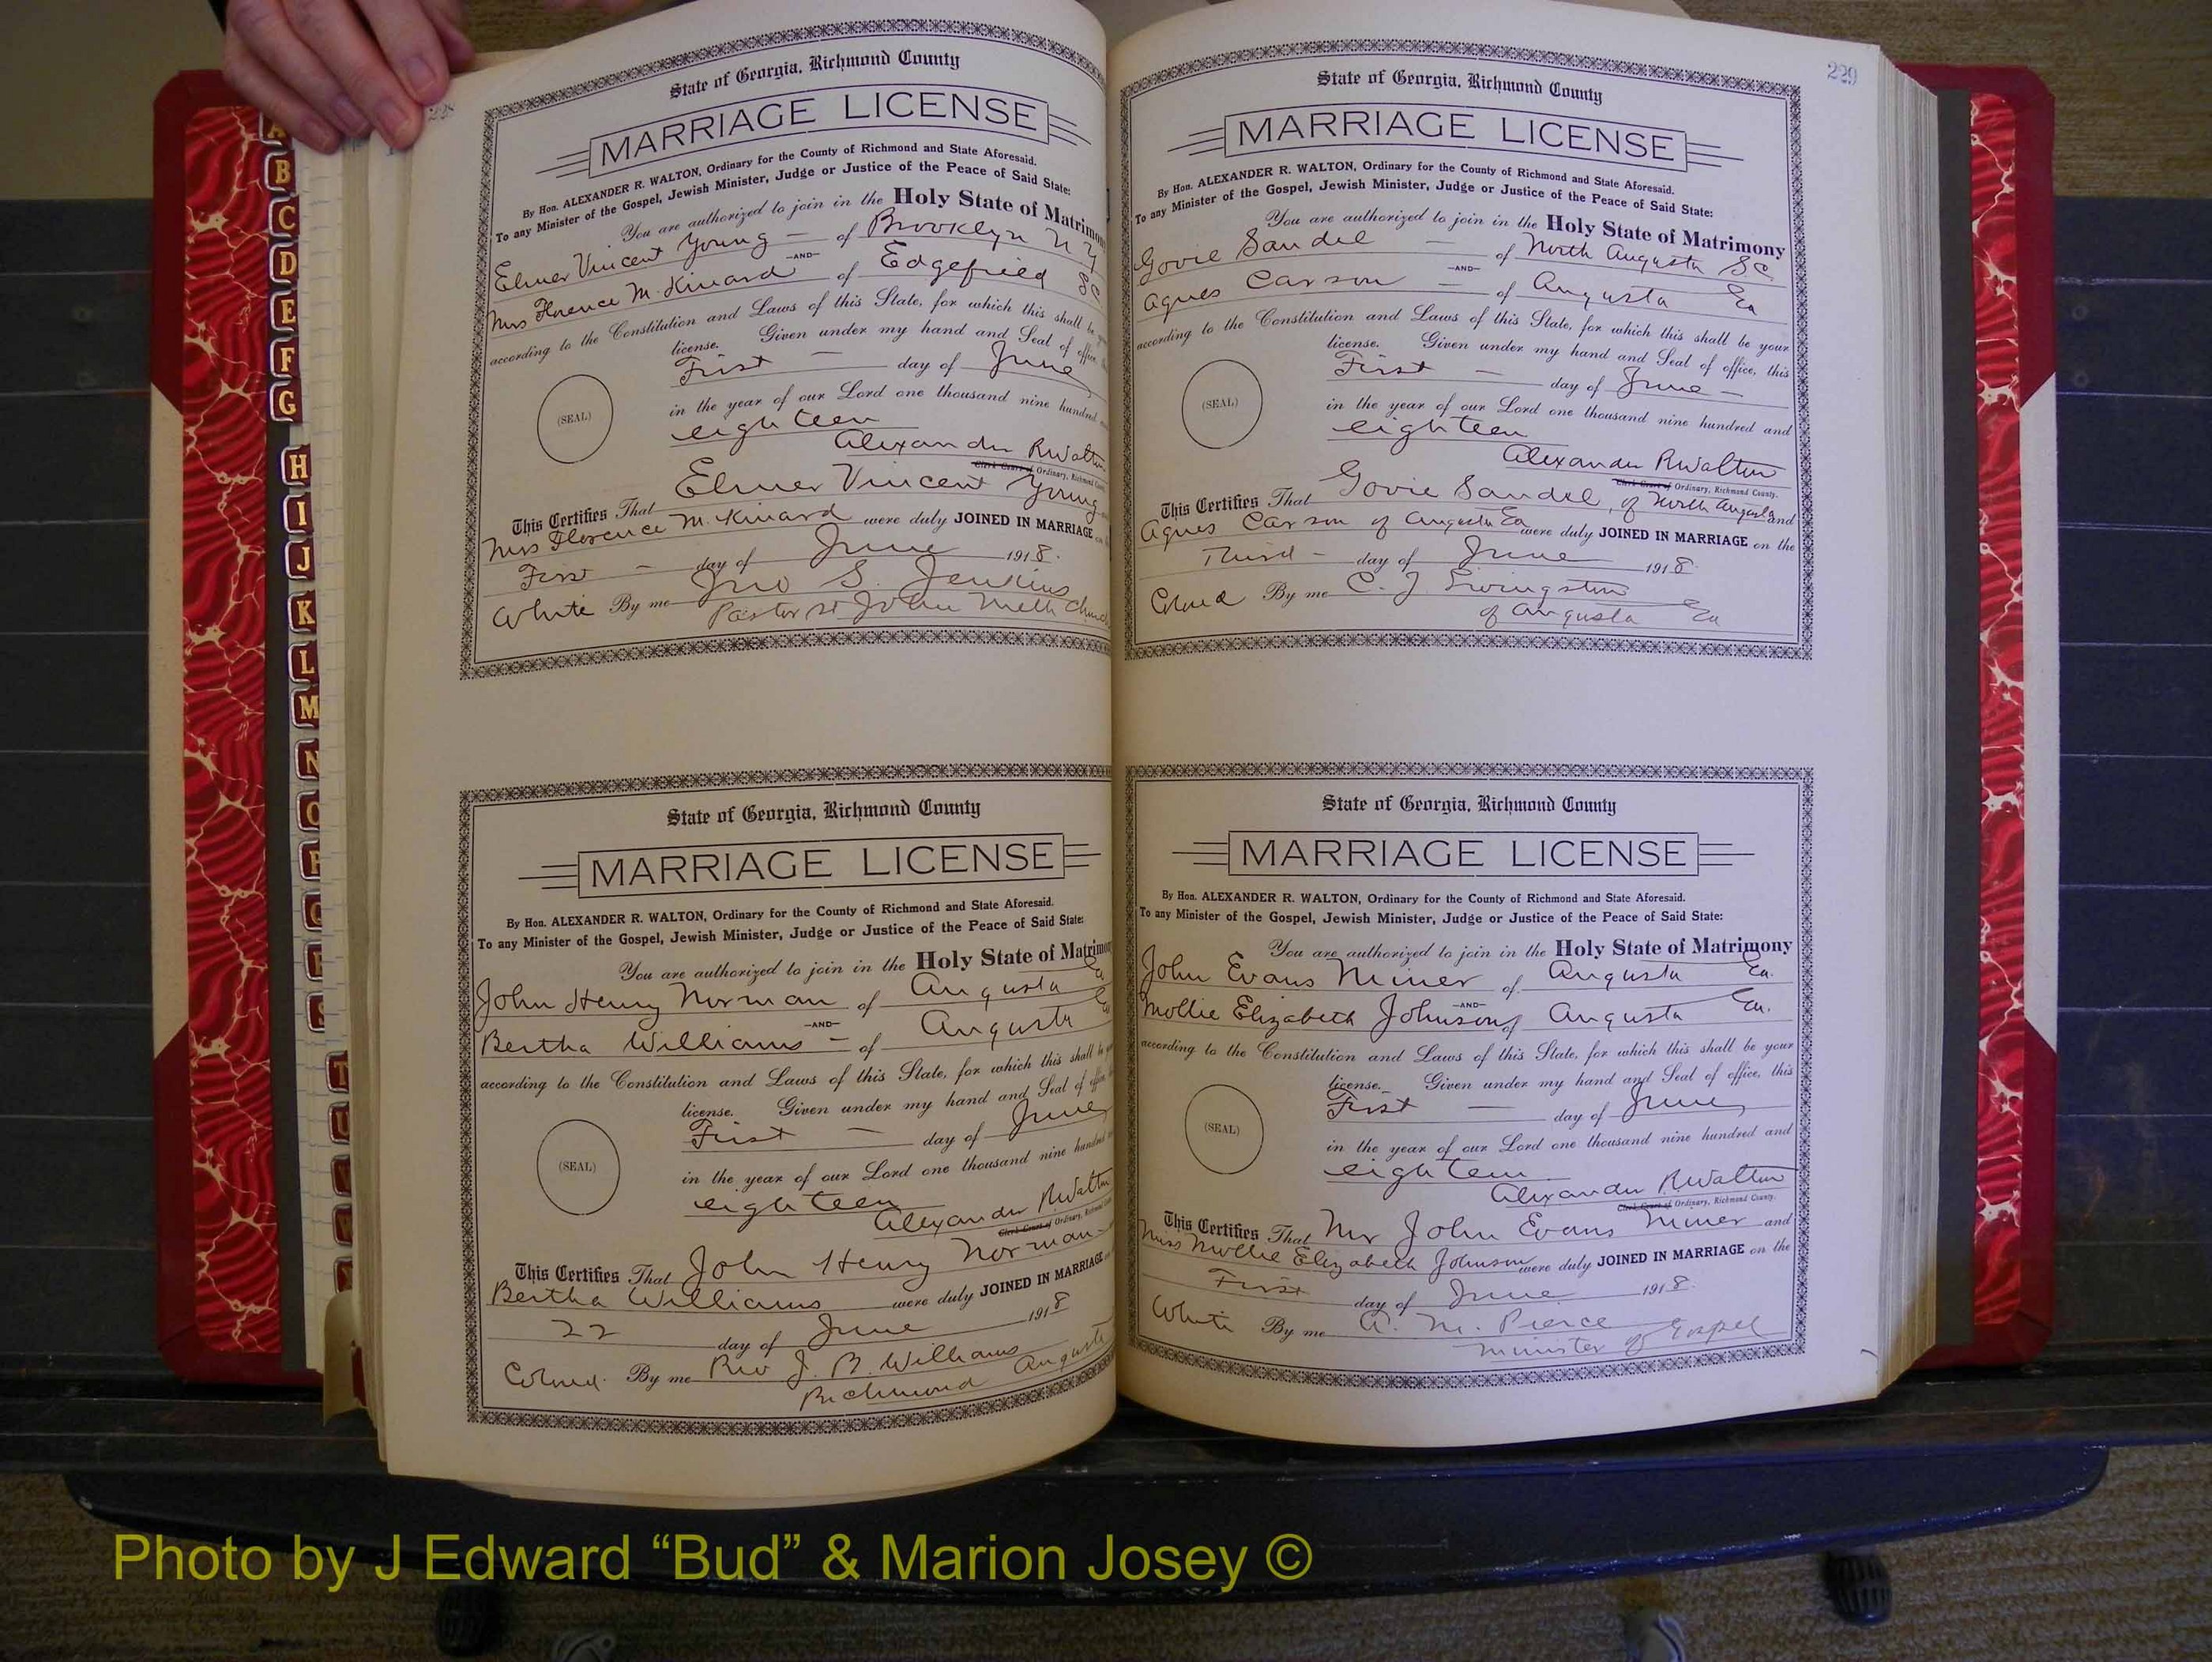 228
State of Georgia, Richmond County
MARRIAGE LICENSE
By Hon. ALEXANDER R. WALTON, Ordinary for the County of Richmond and State Aforesaid.
To any Minister of the Gospel, Jewish Minister, Judge or Justice of the Peace of Said State:
You are authorized to join in the Holy State of Matrimony
Elmer Vincent Young — of Brooklyn N Y
—AND—
Mrs Florence M. Kinard of Edgefield SC
according to the Constitution and Laws of this State, for which this shall be
license. Given under my hand and Seal of office
First — day of June
(SEAL)
in the year of our Lord one thousand nine hundred
eighteen
Alexander R Walton
Clerk Court of Ordinary, Richmond County
This Certifies That Elmer Vincent Young
Mrs Florence M. Kinard were duly JOINED IN MARRIAGE
First — day of June 1918.
White By me Jno S. Jenkins
Pastor St John Meth Church
State of Georgia, Richmond County
MARRIAGE LICENSE
By Hon. ALEXANDER R. WALTON, Ordinary for the County of Richmond and State Aforesaid.
To any Minister of the Gospel, Jewish Minister, Judge or Justice of the Peace of Said State:
You are authorized to join in the Holy State of Matrimony
John Henry Norman of Augusta Ga
—AND—
Bertha Williams — of Augusta Ga
according to the Constitution and Laws of this State, for which this shall be
license. Given under my hand and Seal of office
First — day of June
(SEAL)
in the year of our Lord one thousand nine hundred
eighteen
Alexander R Walton
Clerk Court of Ordinary, Richmond
This Certifies That John Henry Norman
Bertha Williams were duly JOINED IN MARRIAGE
22 day of June 1918
Colored. By me Rev J. B. Williams
Richmond Augusta
229
State of Georgia, Richmond County
MARRIAGE LICENSE
By Hon. ALEXANDER R. WALTON, Ordinary for the County of Richmond and State Aforesaid.
To any Minister of the Gospel, Jewish Minister, Judge or Justice of the Peace of Said State:
You are authorized to join in the Holy State of Matrimony
Govie Sandel — of North Augusta SC
—AND—
Agnes Carson — of Augusta Ga
according to the Constitution and Laws of this State, for which this shall be your
license. Given under my hand and Seal of office, this
First — day of June —
(SEAL)
in the year of our Lord one thousand nine hundred and
eighteen
Alexander R Walton
Clerk Court of Ordinary, Richmond County.
This Certifies That Govie Sandel, of North Augusta and
Agnes Carson of Augusta Ga were duly JOINED IN MARRIAGE on the
Third — day of June 1918.
Colored By me C. J. Livingston
of Augusta Ga
State of Georgia, Richmond County
MARRIAGE LICENSE
By Hon. ALEXANDER R. WALTON, Ordinary for the County of Richmond and State Aforesaid.
To any Minister of the Gospel, Jewish Minister, Judge or Justice of the Peace of Said State:
You are authorized to join in the Holy State of Matrimony
John Evans Miner of Augusta Ga.
—AND—
Mollie Elizabeth Johnson of Augusta Ga.
according to the Constitution and Laws of this State, for which this shall be your
license. Given under my hand and Seal of office, this
First — day of June
(SEAL)
in the year of our Lord one thousand nine hundred and
eighteen
Alexander R. Walton
Clerk Court of Ordinary, Richmond County.
This Certifies That Mr John Evans Miner and
Miss Mollie Elizabeth Johnson were duly JOINED IN MARRIAGE on the
First day of June 1918.
White By me A. M. Pierce
Minister of Gospel
A
B
C
D
E
F
G
H
I
J
K
L
M
N
O
P
Q
R
S
T
U
V
W
Photo by J Edward “Bud” & Marion Josey ©